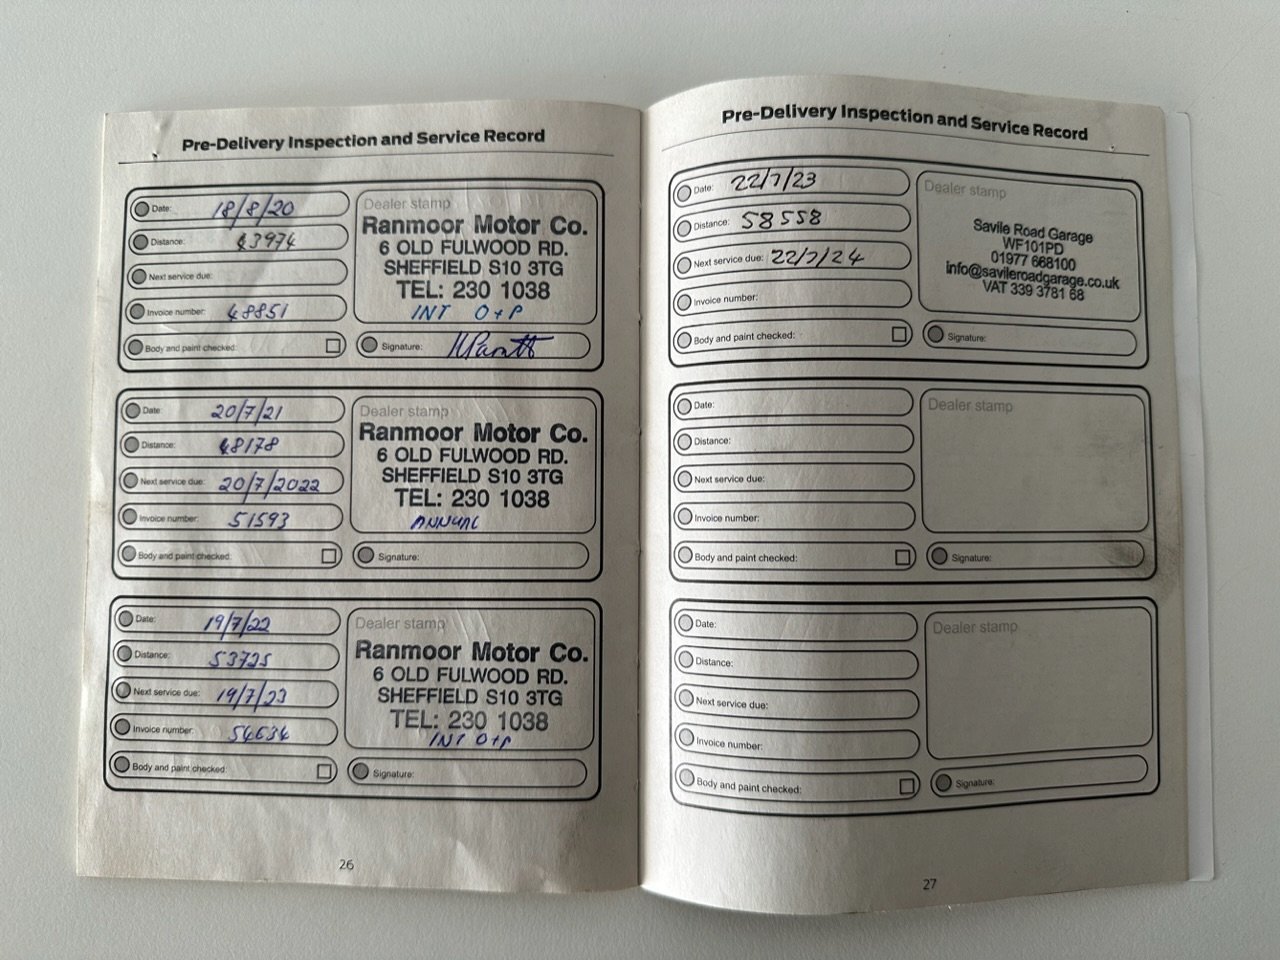 Pre-Delivery Inspection and Service Record
Date: 18/8/20
Distance: 43974
Next service due:
Invoice number: 48851
Body and paint checked:
Dealer stamp
Ranmoor Motor Co.
6 OLD FULWOOD RD.
SHEFFIELD S10 3TG
TEL: 230 1038
INT O+P
Signature:
Date: 20/7/21
Distance: 48178
Next service due: 20/7/2022
Invoice number: 51593
Body and paint checked:
Dealer stamp
Ranmoor Motor Co.
6 OLD FULWOOD RD.
SHEFFIELD S10 3TG
TEL: 230 1038
ANNUAL
Signature:
Date: 19/7/22
Distance: 53725
Next service due: 19/7/23
Invoice number: 54634
Body and paint checked:
Dealer stamp
Ranmoor Motor Co.
6 OLD FULWOOD RD.
SHEFFIELD S10 3TG
TEL: 230 1038
INT O+P
Signature:
26
Pre-Delivery Inspection and Service Record
Date: 22/7/23
Distance: 58558
Next service due: 22/7/24
Invoice number:
Body and paint checked:
Dealer stamp
Savile Road Garage
WF101PD
01977 668100
info@savileroadgarage.co.uk
VAT 339 3781 68
Signature:
Date:
Distance:
Next service due:
Invoice number:
Body and paint checked:
Dealer stamp
Signature:
Date:
Distance:
Next service due:
Invoice number:
Body and paint checked:
Dealer stamp
Signature:
27